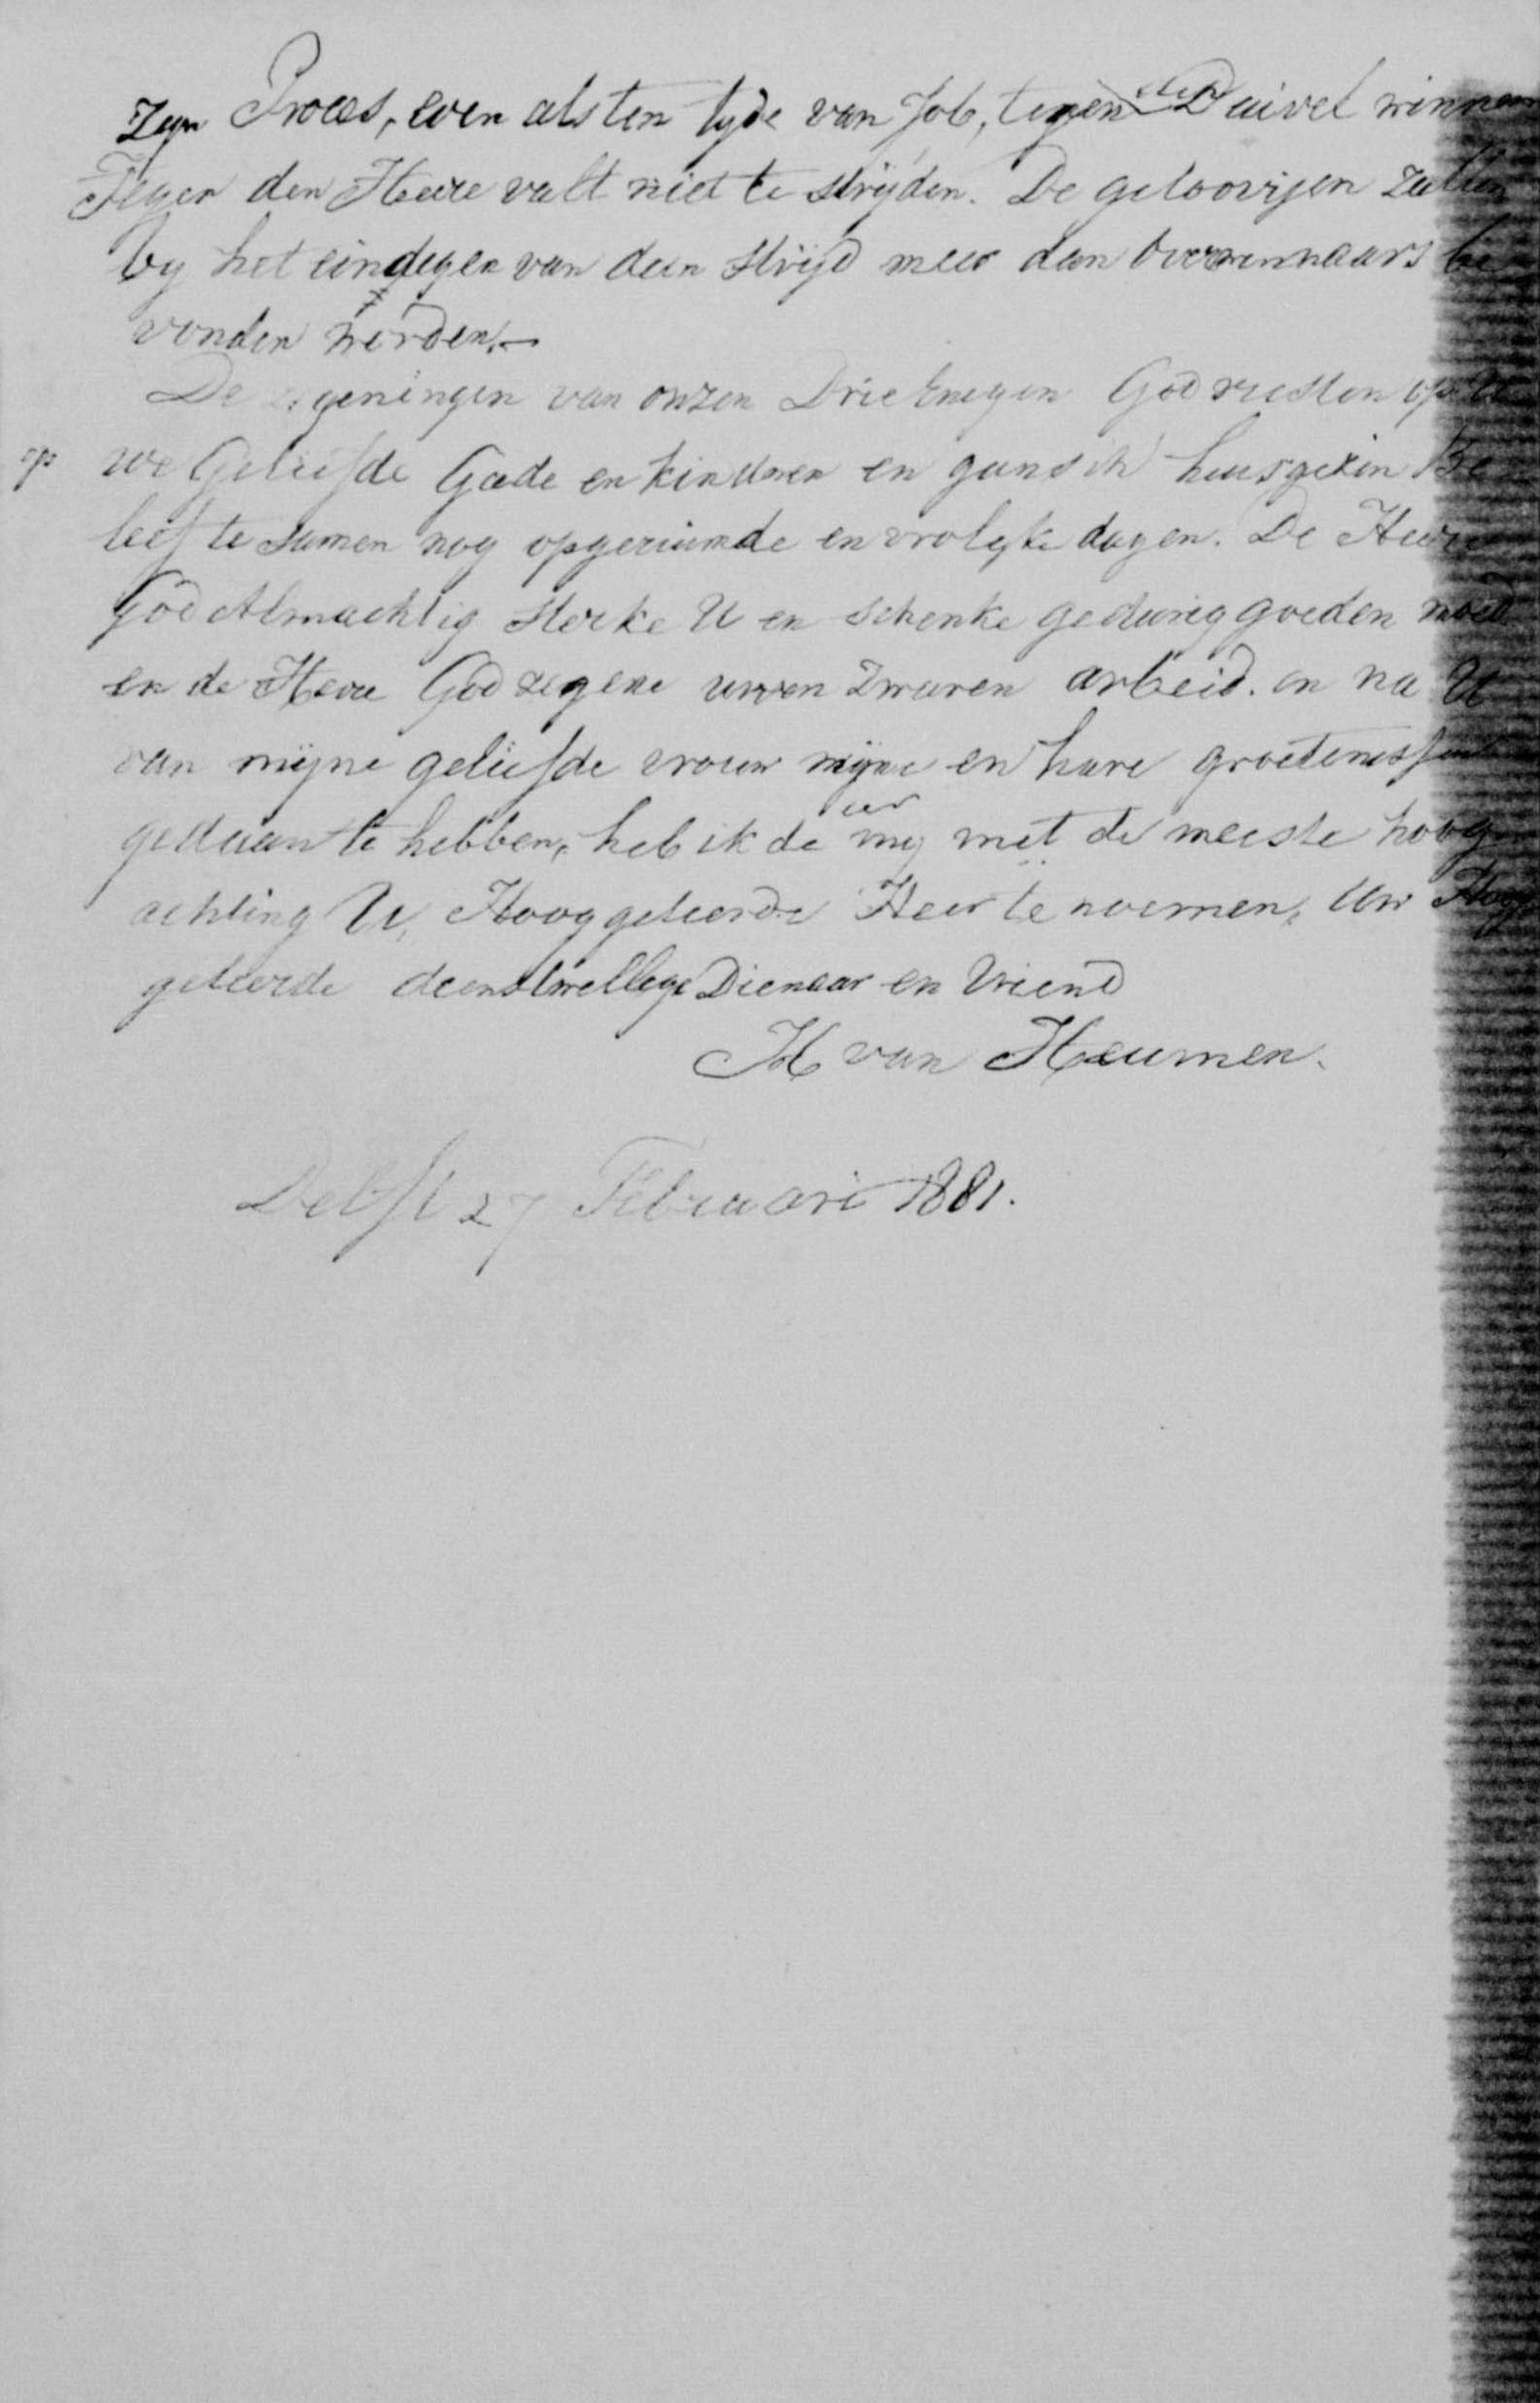 Zyn Proces, even als ten tyde van Job, tegen den Duivel winnen
Tegen den Heere valt niet te stryden. De geloovigen zullen
by het eindigen van dien strijd meer dan overwinnaars be
vonden worden.—
De zegeningen van onzen Drieënigen God rusten op U
op we Geliefde Gade en kinderen en gansch huisgezin Be
leef te samen nog opgeruimde en vrolyke dagen. De Heere
God Almachtig sterke U en schenke gedurig goeden moed
en de Heere God zegene uwen zwaren arbeid. en na U
van mijne geliefde vrouw mijne en hare groetenissen
gedaan te hebben, heb ik de eer my met de meeste hoog
achting U, Hooggeleerde Heer te noemen, Uw Hoog
geleerde dienstwillige Dienaar en Vriend
H van Heumen.
Delft 27 Februari 1881.